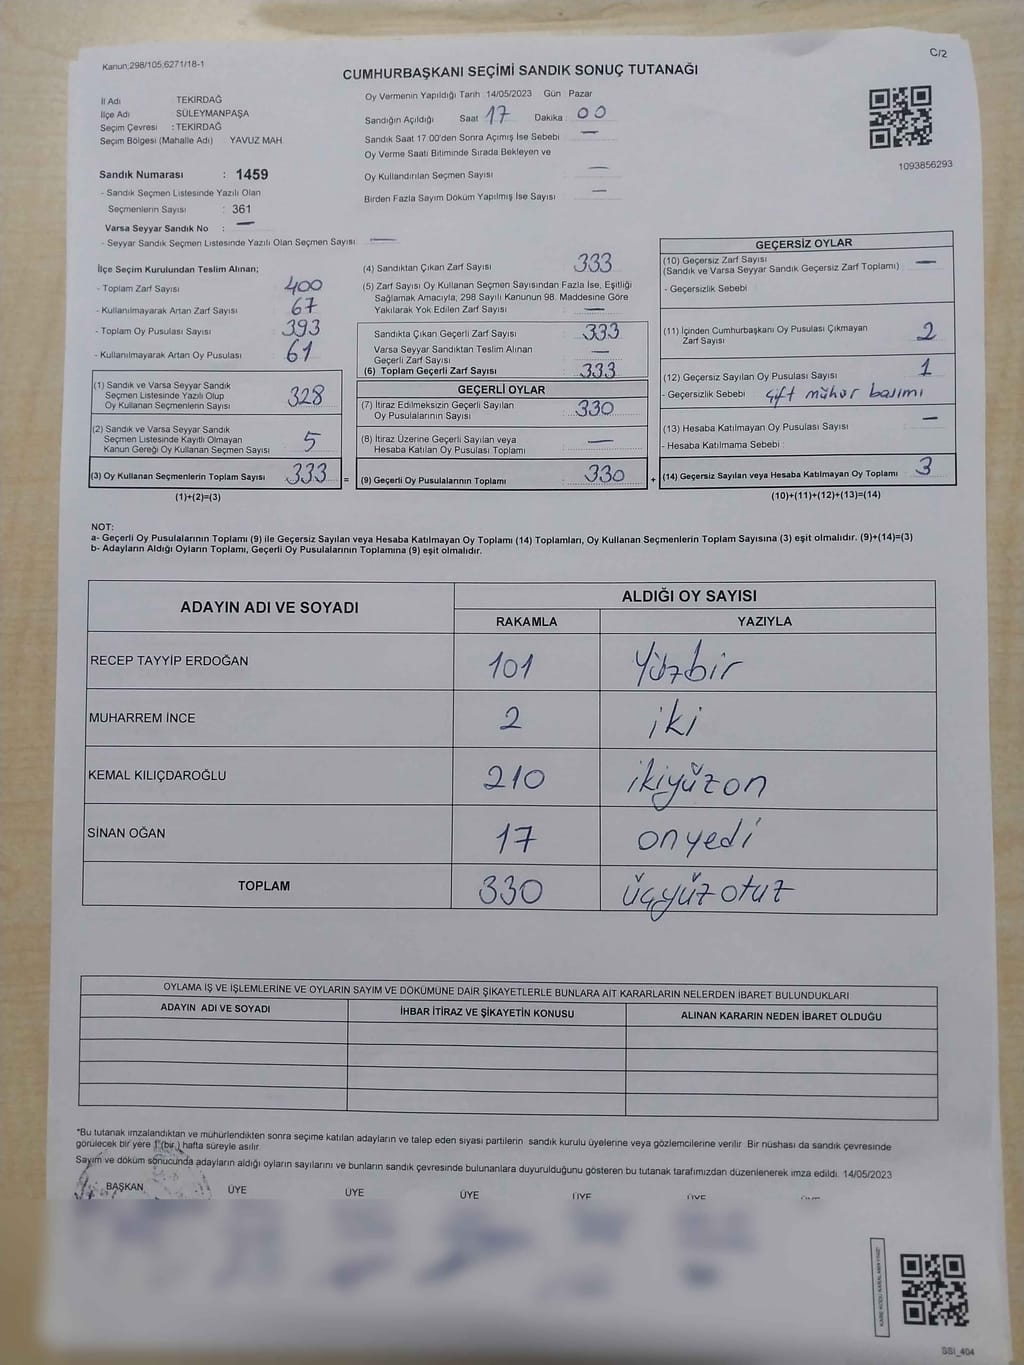 Kanun;298/105,6271/18-1
C/2
CUMHURBAŞKANI SEÇİMİ SANDIK SONUÇ TUTANAĞI
İl Adı TEKİRDAĞ
İlçe Adı SÜLEYMANPAŞA
Seçim Çevresi : TEKİRDAĞ
Seçim Bölgesi (Mahalle Adı) YAVUZ MAH.
Oy Vermenin Yapıldığı Tarih : 14/05/2023 Gün Pazar
Sandığın Açıldığı Saat 17 Dakika 00
Sandık Saat 17.00'den Sonra Açımış İse Sebebi : —
Oy Verme Saati Bitiminde Sırada Bekleyen ve
Oy Kullandırılan Seçmen Sayısı : —
Birden Fazla Sayım Döküm Yapılmış İse Sayısı : —
1093856293
Sandık Numarası : 1459
- Sandık Seçmen Listesinde Yazılı Olan
Seçmenlerin Sayısı : 361
Varsa Seyyar Sandık No : —
- Seyyar Sandık Seçmen Listesinde Yazılı Olan Seçmen Sayısı : —
İlçe Seçim Kurulundan Teslim Alınan;
- Toplam Zarf Sayısı : 400
- Kullanılmayarak Artan Zarf Sayısı : 67
- Toplam Oy Pusulası Sayısı : 393
- Kullanılmayarak Artan Oy Pusulası : 61
(1) Sandık ve Varsa Seyyar Sandık
Seçmen Listesinde Yazılı Olup
Oy Kullanan Seçmenlerin Sayısı : 328
(2) Sandık ve Varsa Seyyar Sandık
Seçmen Listesinde Kayıtlı Olmayan
Kanun Gereği Oy Kullanan Seçmen Sayısı : 5
(3) Oy Kullanan Seçmenlerin Toplam Sayısı : 333 =
(1)+(2)=(3)
(4) Sandıktan Çıkan Zarf Sayısı : 333
(5) Zarf Sayısı Oy Kullanan Seçmen Sayısından Fazla İse, Eşitliği
Sağlamak Amacıyla; 298 Sayılı Kanunun 98. Maddesine Göre
Yakılarak Yok Edilen Zarf Sayısı : —
Sandıkta Çıkan Geçerli Zarf Sayısı : 333
Varsa Seyyar Sandıktan Teslim Alınan
Geçerli Zarf Sayısı : —
(6) Toplam Geçerli Zarf Sayısı : 333
GEÇERLİ OYLAR
(7) İtiraz Edilmeksizin Geçerli Sayılan
Oy Pusulalarının Sayısı : 330
(8) İtiraz Üzerine Geçerli Sayılan veya
Hesaba Katılan Oy Pusulası Toplamı : —
(9) Geçerli Oy Pusulalarının Toplamı : 330 +
GEÇERSİZ OYLAR
(10) Geçersiz Zarf Sayısı
(Sandık ve Varsa Seyyar Sandık Geçersiz Zarf Toplamı) : —
- Geçersizlik Sebebi :
(11) İçinden Cumhurbaşkanı Oy Pusulası Çıkmayan
Zarf Sayısı : 2
(12) Geçersiz Sayılan Oy Pusulası Sayısı : 1
- Geçersizlik Sebebi : çift mühür basımı
(13) Hesaba Katılmayan Oy Pusulası Sayısı : —
- Hesaba Katılmama Sebebi :
(14) Geçersiz Sayılan veya Hesaba Katılmayan Oy Toplamı : 3
(10)+(11)+(12)+(13)=(14)
NOT:
a- Geçerli Oy Pusulalarının Toplamı (9) ile Geçersiz Sayılan veya Hesaba Katılmayan Oy Toplamı (14) Toplamları, Oy Kullanan Seçmenlerin Toplam Sayısına (3) eşit olmalıdır. (9)+(14)=(3)
b- Adayların Aldığı Oyların Toplamı, Geçerli Oy Pusulalarının Toplamına (9) eşit olmalıdır.
ADAYIN ADI VE SOYADI ALDIĞI OY SAYISI
RAKAMLA YAZIYLA
RECEP TAYYİP ERDOĞAN 101 yüzbir
MUHARREM İNCE 2 iki
KEMAL KILIÇDAROĞLU 210 ikiyüzon
SİNAN OĞAN 17 onyedi
TOPLAM 330 üçyüzotuz
OYLAMA İŞ VE İŞLEMLERİNE VE OYLARIN SAYIM VE DÖKÜMÜNE DAİR ŞİKAYETLERLE BUNLARA AİT KARARLARIN NELERDEN İBARET BULUNDUKLARI
ADAYIN ADI VE SOYADI İHBAR İTİRAZ VE ŞİKAYETİN KONUSU ALINAN KARARIN NEDEN İBARET OLDUĞU
*Bu tutanak imzalandıktan ve mühürlendikten sonra seçime katılan adayların ve talep eden siyasi partilerin sandık kurulu üyelerine veya gözlemcilerine verilir. Bir nüshası da sandık çevresinde
görülecek bir yere 1 (bir ) hafta süreyle asılır.
Sayım ve döküm sonucunda adayların aldığı oyların sayılarını ve bunların sandık çevresinde bulunanlara duyurulduğunu gösteren bu tutanak tarafımızdan düzenlenerek imza edildi. 14/05/2023
BAŞKAN ÜYE ÜYE ÜYE ÜYE ÜYE
SSI_404